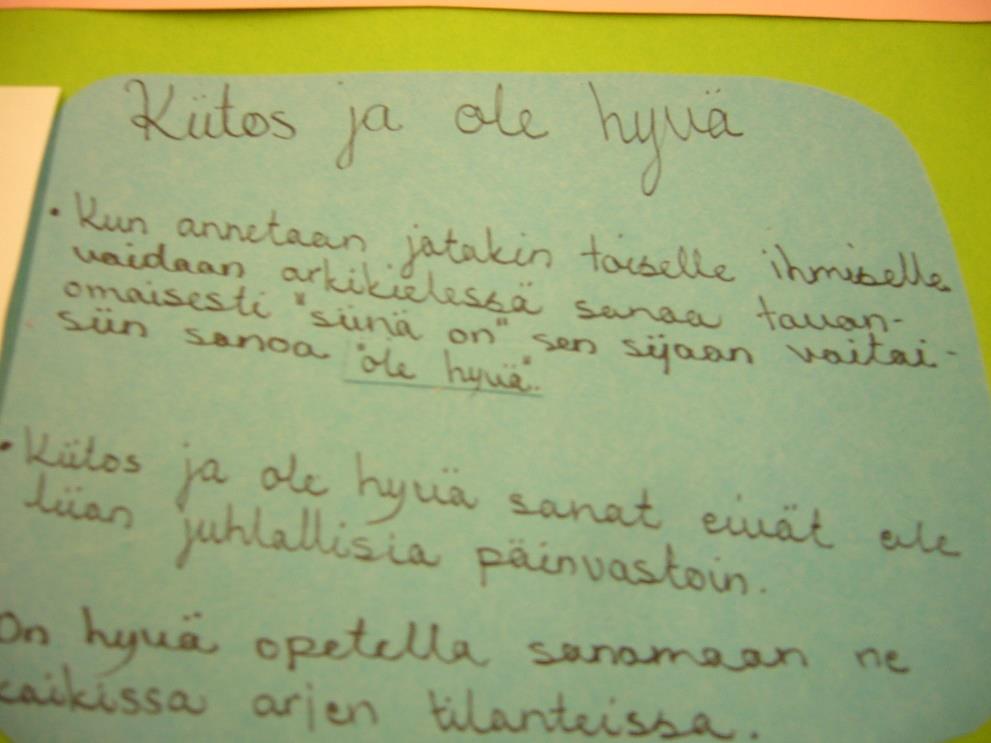 Kiitos ja ole hyvä
• Kun annetaan jatakin toiselle ihmiselle
voidaan arkikielessä sanoa tavan-
omaisesti "siinä on" sen sijaan voitai-
siin sanoa "ole hyvä".
• Kiitos ja ole hyvä sanat eivät ole
liian juhlallisia päinvastoin.
On hyvä opetella sanomaan ne
kaikissa arjen tilanteissa.